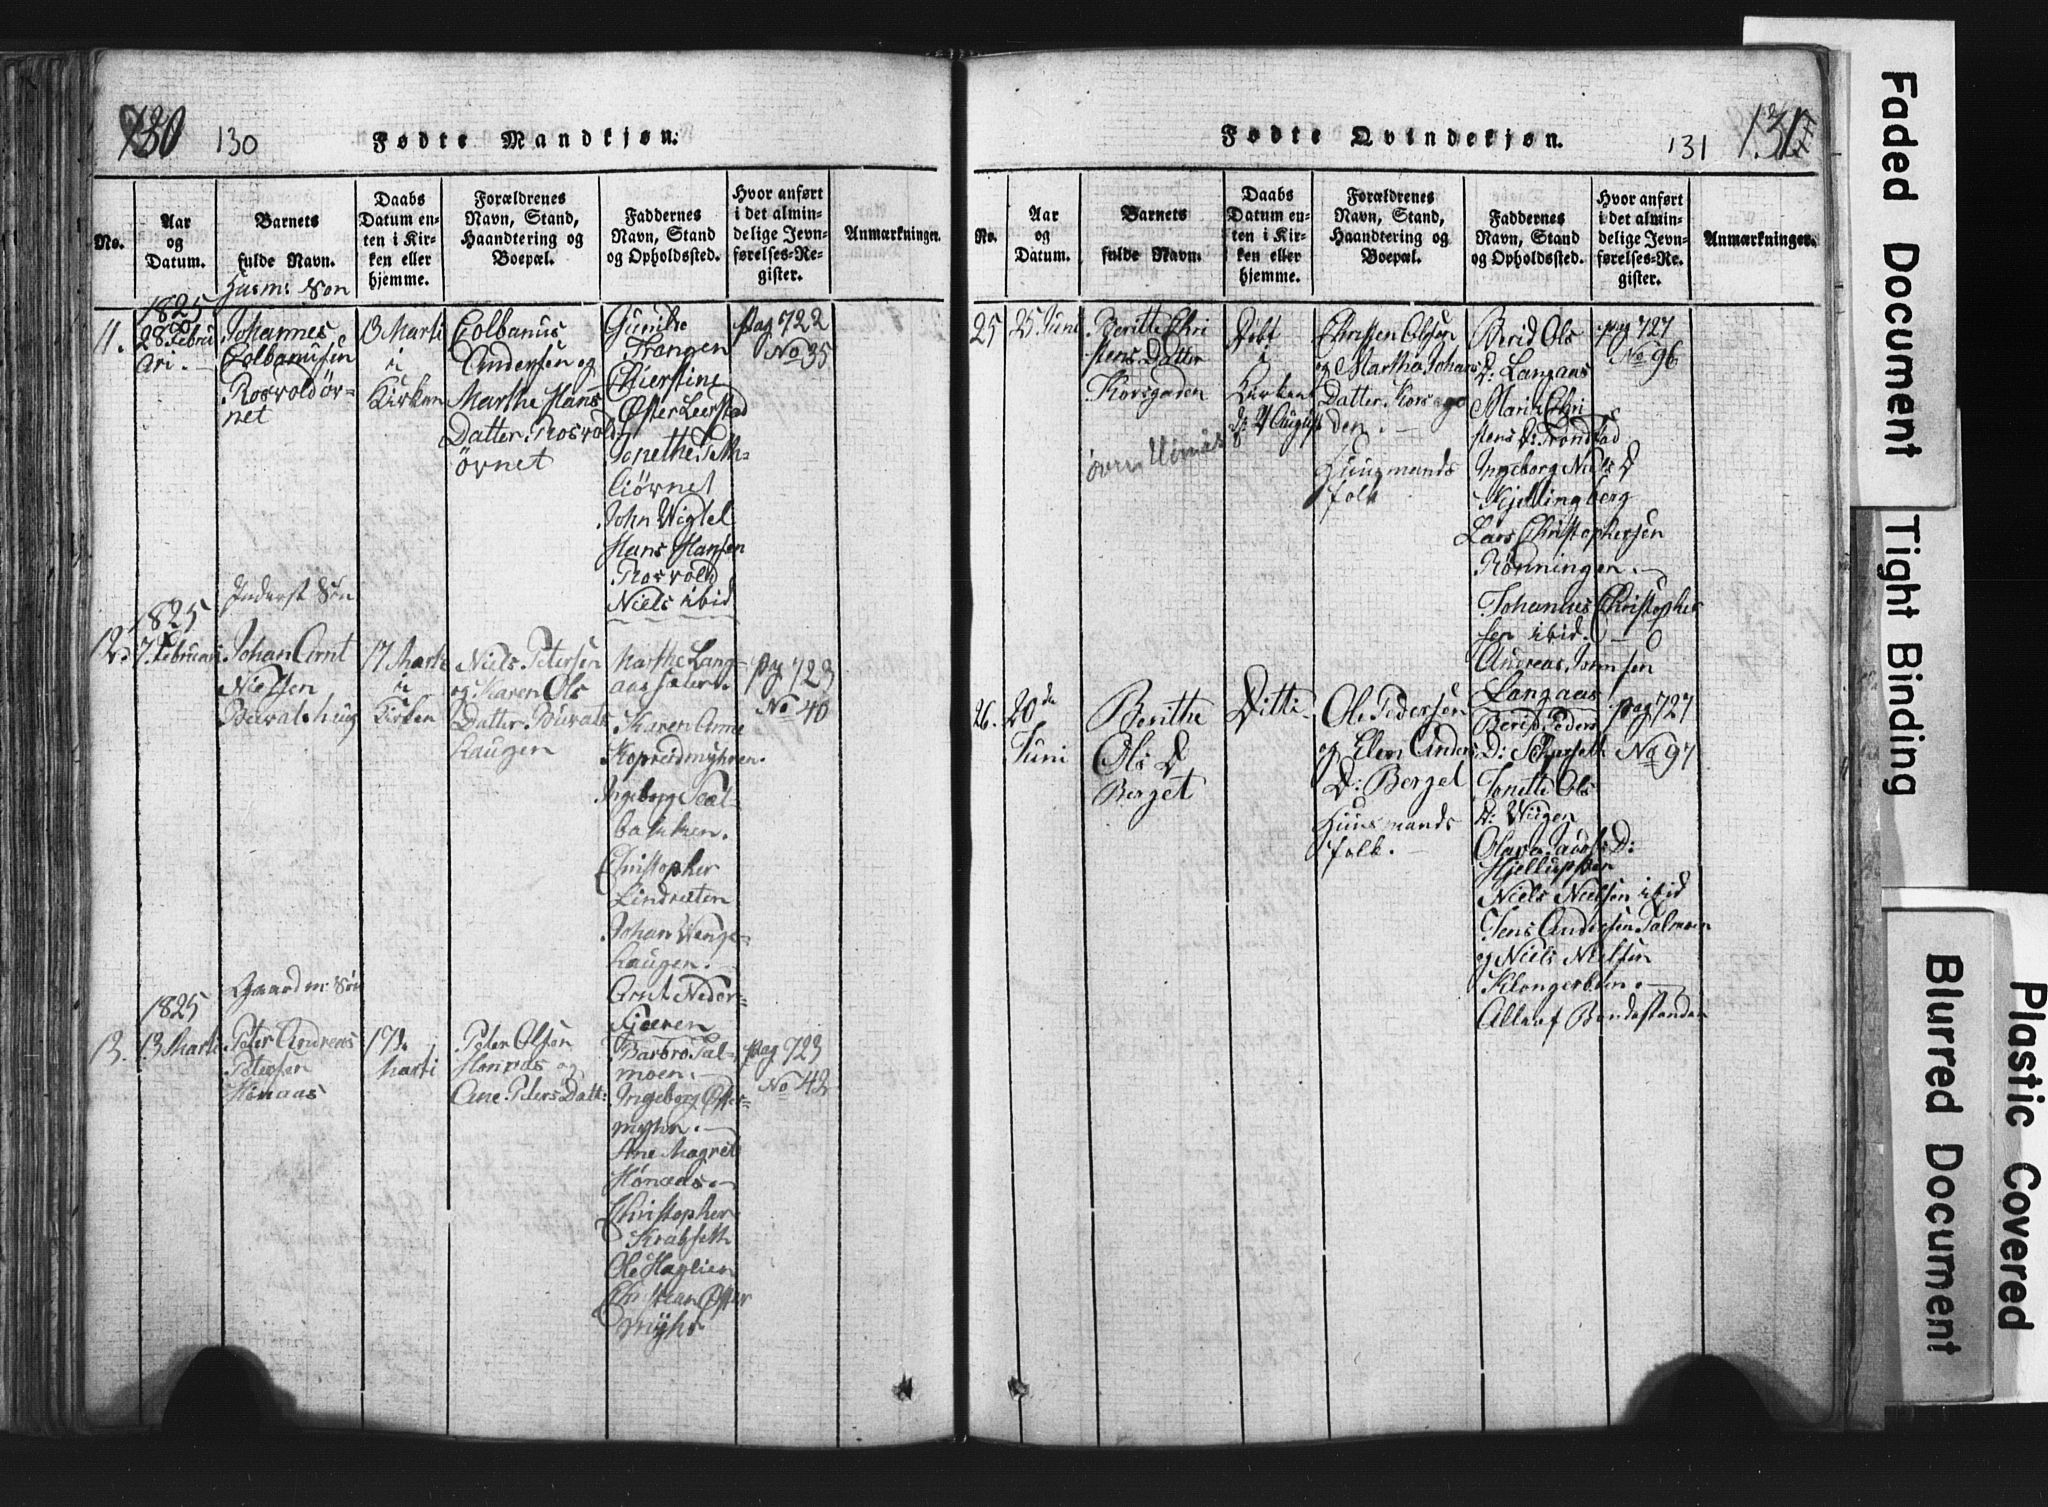 130 130 Fødte Mandkjøn.
No.
Aar
og
Datum.
Barnets
fulde Navn.
Daabs
Datum en-
ten i Kir-
ken eller
hjemme.
Forældrenes
Navn, Stand,
Haandtering og
Boepæl.
Faddernes
Navn, Stand
og Opholdssted.
Hvor anført
i det almin-
delige Jevn-
førelses-Re-
gister.
Anmærkninger.
Huusm: Søn
11.
1825
28 Febru
ari.
Johannes
Colbanusen
Rosvoldør-
net
13 Marti
i
Kirken
Colbanus
Andersen og
Marthe Hans
Datter. Rosvold-
ørnet
Gunilre
Trangen
Chierstine
Øster Leerstad
Jonethe
John Wigtel
Hans Hansen
Rosvold
Niels ibid
pag 722
No 35
Inderst Søn
12.
1825
7. Februar
Johan Arnt
Nielsen
17 Marti
i
Kirken
Niels Petersen
og Karen Ols
Datter Burats
haugen
Marthe Lang-
aas sæter.
Karen Anne
Kopreidmyhren.
Ingeborg Sæl-
bakken.
Christopher
Lindræten
Johan Wenge-
haugen.
Arnt Neder-
pag 723
No 40
Gaardm: Søn
13.
1825
13 Marti
Peter Andreas
Petersen
Hønaas
17de
Marti
Peter Olsen
Hønaas og
Ane Peters Datt:
Barbro Tal-
moen.
Ingeborg Øster-
myhr.
Ane Magret
Hønaas.
Christopher
Krabseth
Ole Haglien
Christian Øster
myhr
pag 723
No 42
Fødte Qvindekjøn. 131 131
No.
Aar
og
Datum.
Barnets
fulde Navn.
Daabs
Datum en-
ten i Kir-
ken eller
hjemme.
Forældrenes
Navn, Stand,
Haandtering og
Boepæl.
Faddernes
Navn, Stand
og Opholdssted.
Hvor anført
i det almin-
delige Jevn-
førelses-Re-
gister.
Anmærkninger.
25
25 Juni
Beritte Chri
stens Datter
Korsgaden
Døbt
i
Kirken
Christen Olsen
og Martha Johans
Datter. Korsga
den.
Huusmands
folk
Berid Ols
D: Langaas
Marit Chri
stens D: Trondstad
Ingeborg Niels D
Kjellingberg
Lars Christophersen
Rønningen.
Johannes Christopher
sen ibid.
Andreas Jonsen
Langaas
pag 727
No 96
26.
20de
Juni
Berithe
Ols D
Berget
Ditti
Ole Pedersen
og Elen Anders
D: Berget
Huusmands
folk.
Berit Peders
D:
Jonette Ols
D: Wiigen
Niels Nielsen ibid
Jens Andersen Talmoen
og Niels Nielsen
Klongerbken.
Alle af Bondestanden
pag 727
No 97
Faded Document
Tight Binding
Blurred Document
Plastic Covered